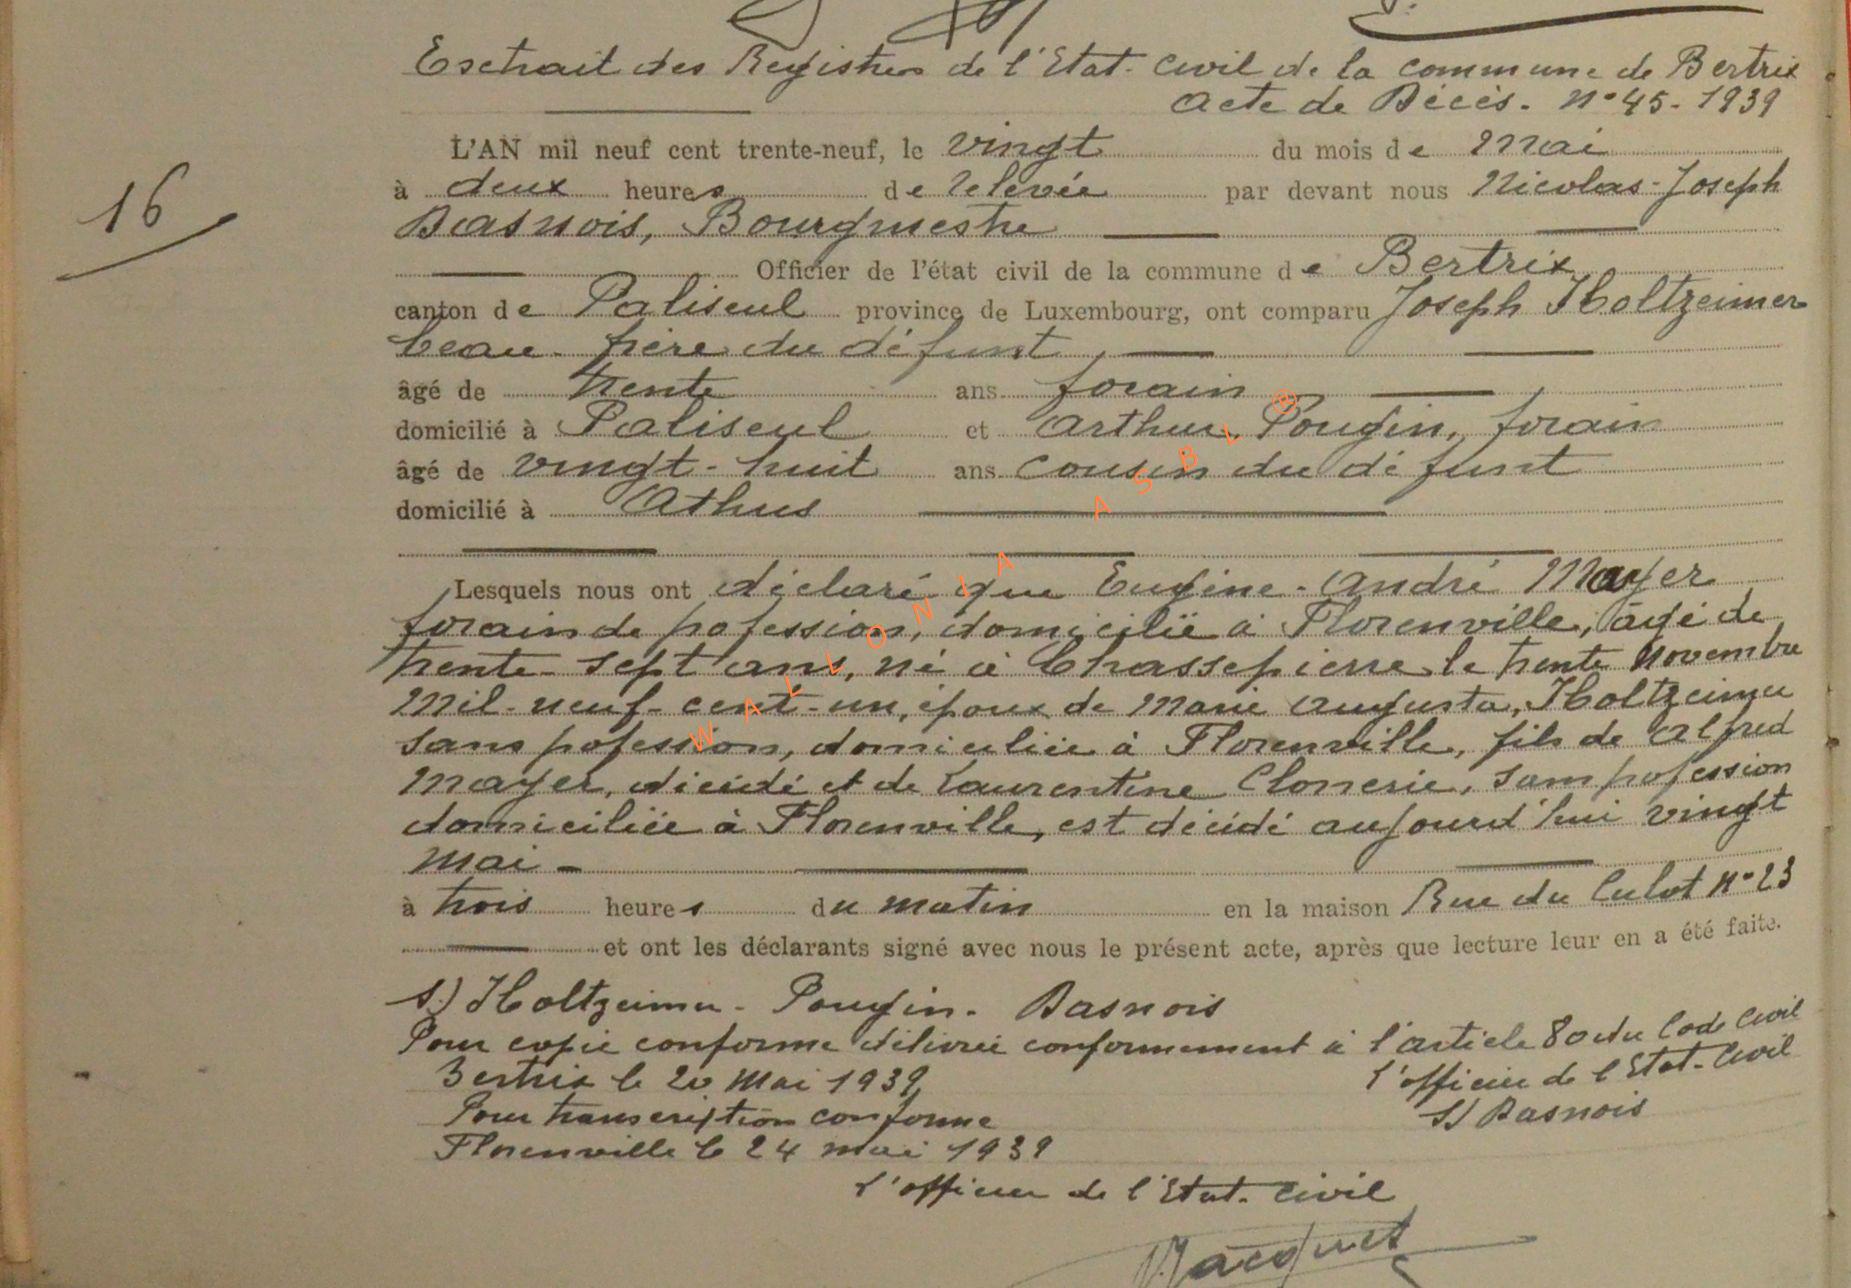 Extrait des Registres de l'Etat-Civil de la commune de Bertrix
Acte de Décès. N° 45-1939
L'AN mil neuf cent trente-neuf, le vingt du mois de Mai
16
à deux heures de relevée par devant nous Nicolas-Joseph
Dasnois, Bourgmestre
Officier de l'état civil de la commune de Bertrix
canton de Paliseul province de Luxembourg, ont comparu Joseph Holtzeimer
beau-frère du défunt
âgé de trente ans forain
domicilié à Paliseul et Arthur Pougin, forain
âgé de vingt-huit ans cousin du défunt
domicilié à Athus
Lesquels nous ont déclaré que Eugène-André Mayer
forain de pofession, domicilié à Florenville, âgé de
trente-sept ans, né à Chassepierre le trente Novembre
Mil-neuf-cent-un, époux de Marie Augusta, Holtzeimer
sans pofession, domiciliée à Florenville, fils de Alfred
Mayer, décédé et de Laurentine, sans pofession
domiciliée à Florenville, est décédé aujourd'hui vingt
mai -
à trois heures du matin en la maison Rue du Culot N° 23
et ont les déclarants signé avec nous le présent acte, après que lecture leur en a été faite.
s.) Holtzeimer - Pougin - Dasnois
Pour copie conforme délivrée conformement à l'article 80 du Code Civil
Bertrix le 20 Mai 1939 l'officier de l'Etat-Civil
Pour transcription conforme s) Dasnois
Florenville le 24 mai 1939
l'officier de l'Etat-Civil
Jacquet
WALLONIA ASBL ®